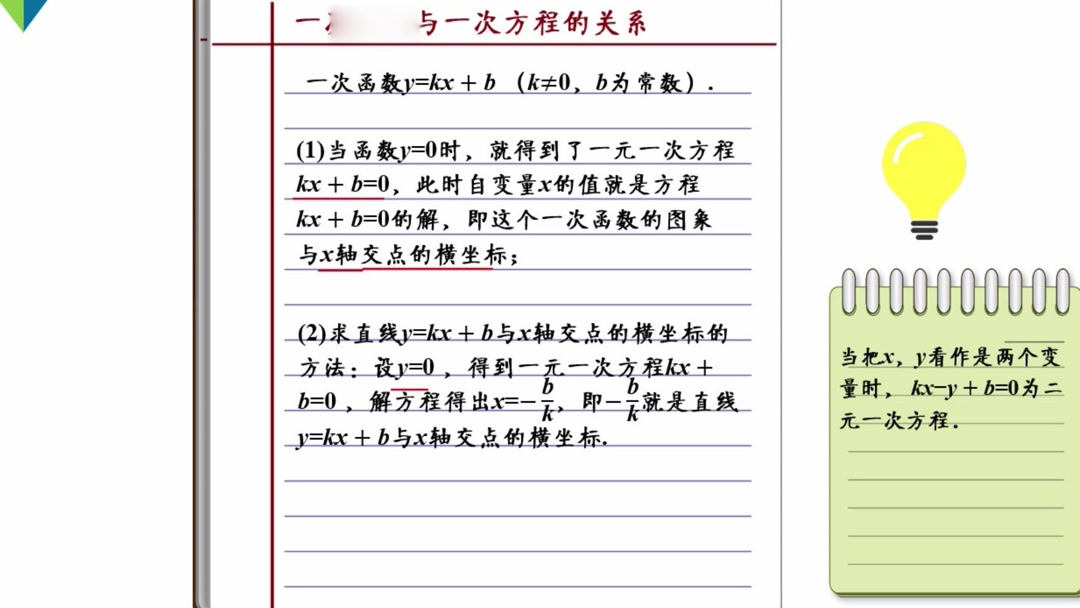 一 与一次方程的关系
一次函数y=kx+b（k≠0，b为常数）.
(1)当函数y=0时，就得到了一元一次方程
kx+b=0，此时自变量x的值就是方程
kx+b=0的解，即这个一次函数的图象
与x轴交点的横坐标；
(2)求直线y=kx+b与x轴交点的横坐标的
方法：设y=0，得到一元一次方程kx+
b=0，解方程得出x=−b/k，即−b/k就是直线
y=kx+b与x轴交点的横坐标.
当把x，y看作是两个变
量时，kx−y+b=0为二
元一次方程.